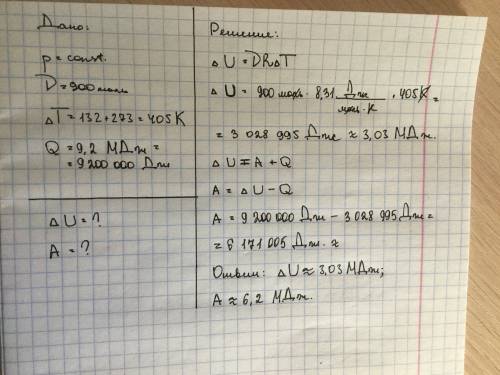 Дано:
p = const.
ν = 900 моль
ΔT = 132 + 273 = 405 K
Q = 9,2 МДж =
= 9 200 000 Дж
ΔU = ?
A = ?
Решение:
ΔU = νRΔT
ΔU = 900 моль · 8,31 Дж/моль·К · 405 К =
= 3 028 995 Дж ≈ 3,03 МДж.
ΔU = A + Q
A = ΔU - Q
A = 9 200 000 Дж - 3 028 995 Дж =
= 6 171 005 Дж. ≈
Ответ: ΔU ≈ 3,03 МДж;
A ≈ 6,2 МДж.